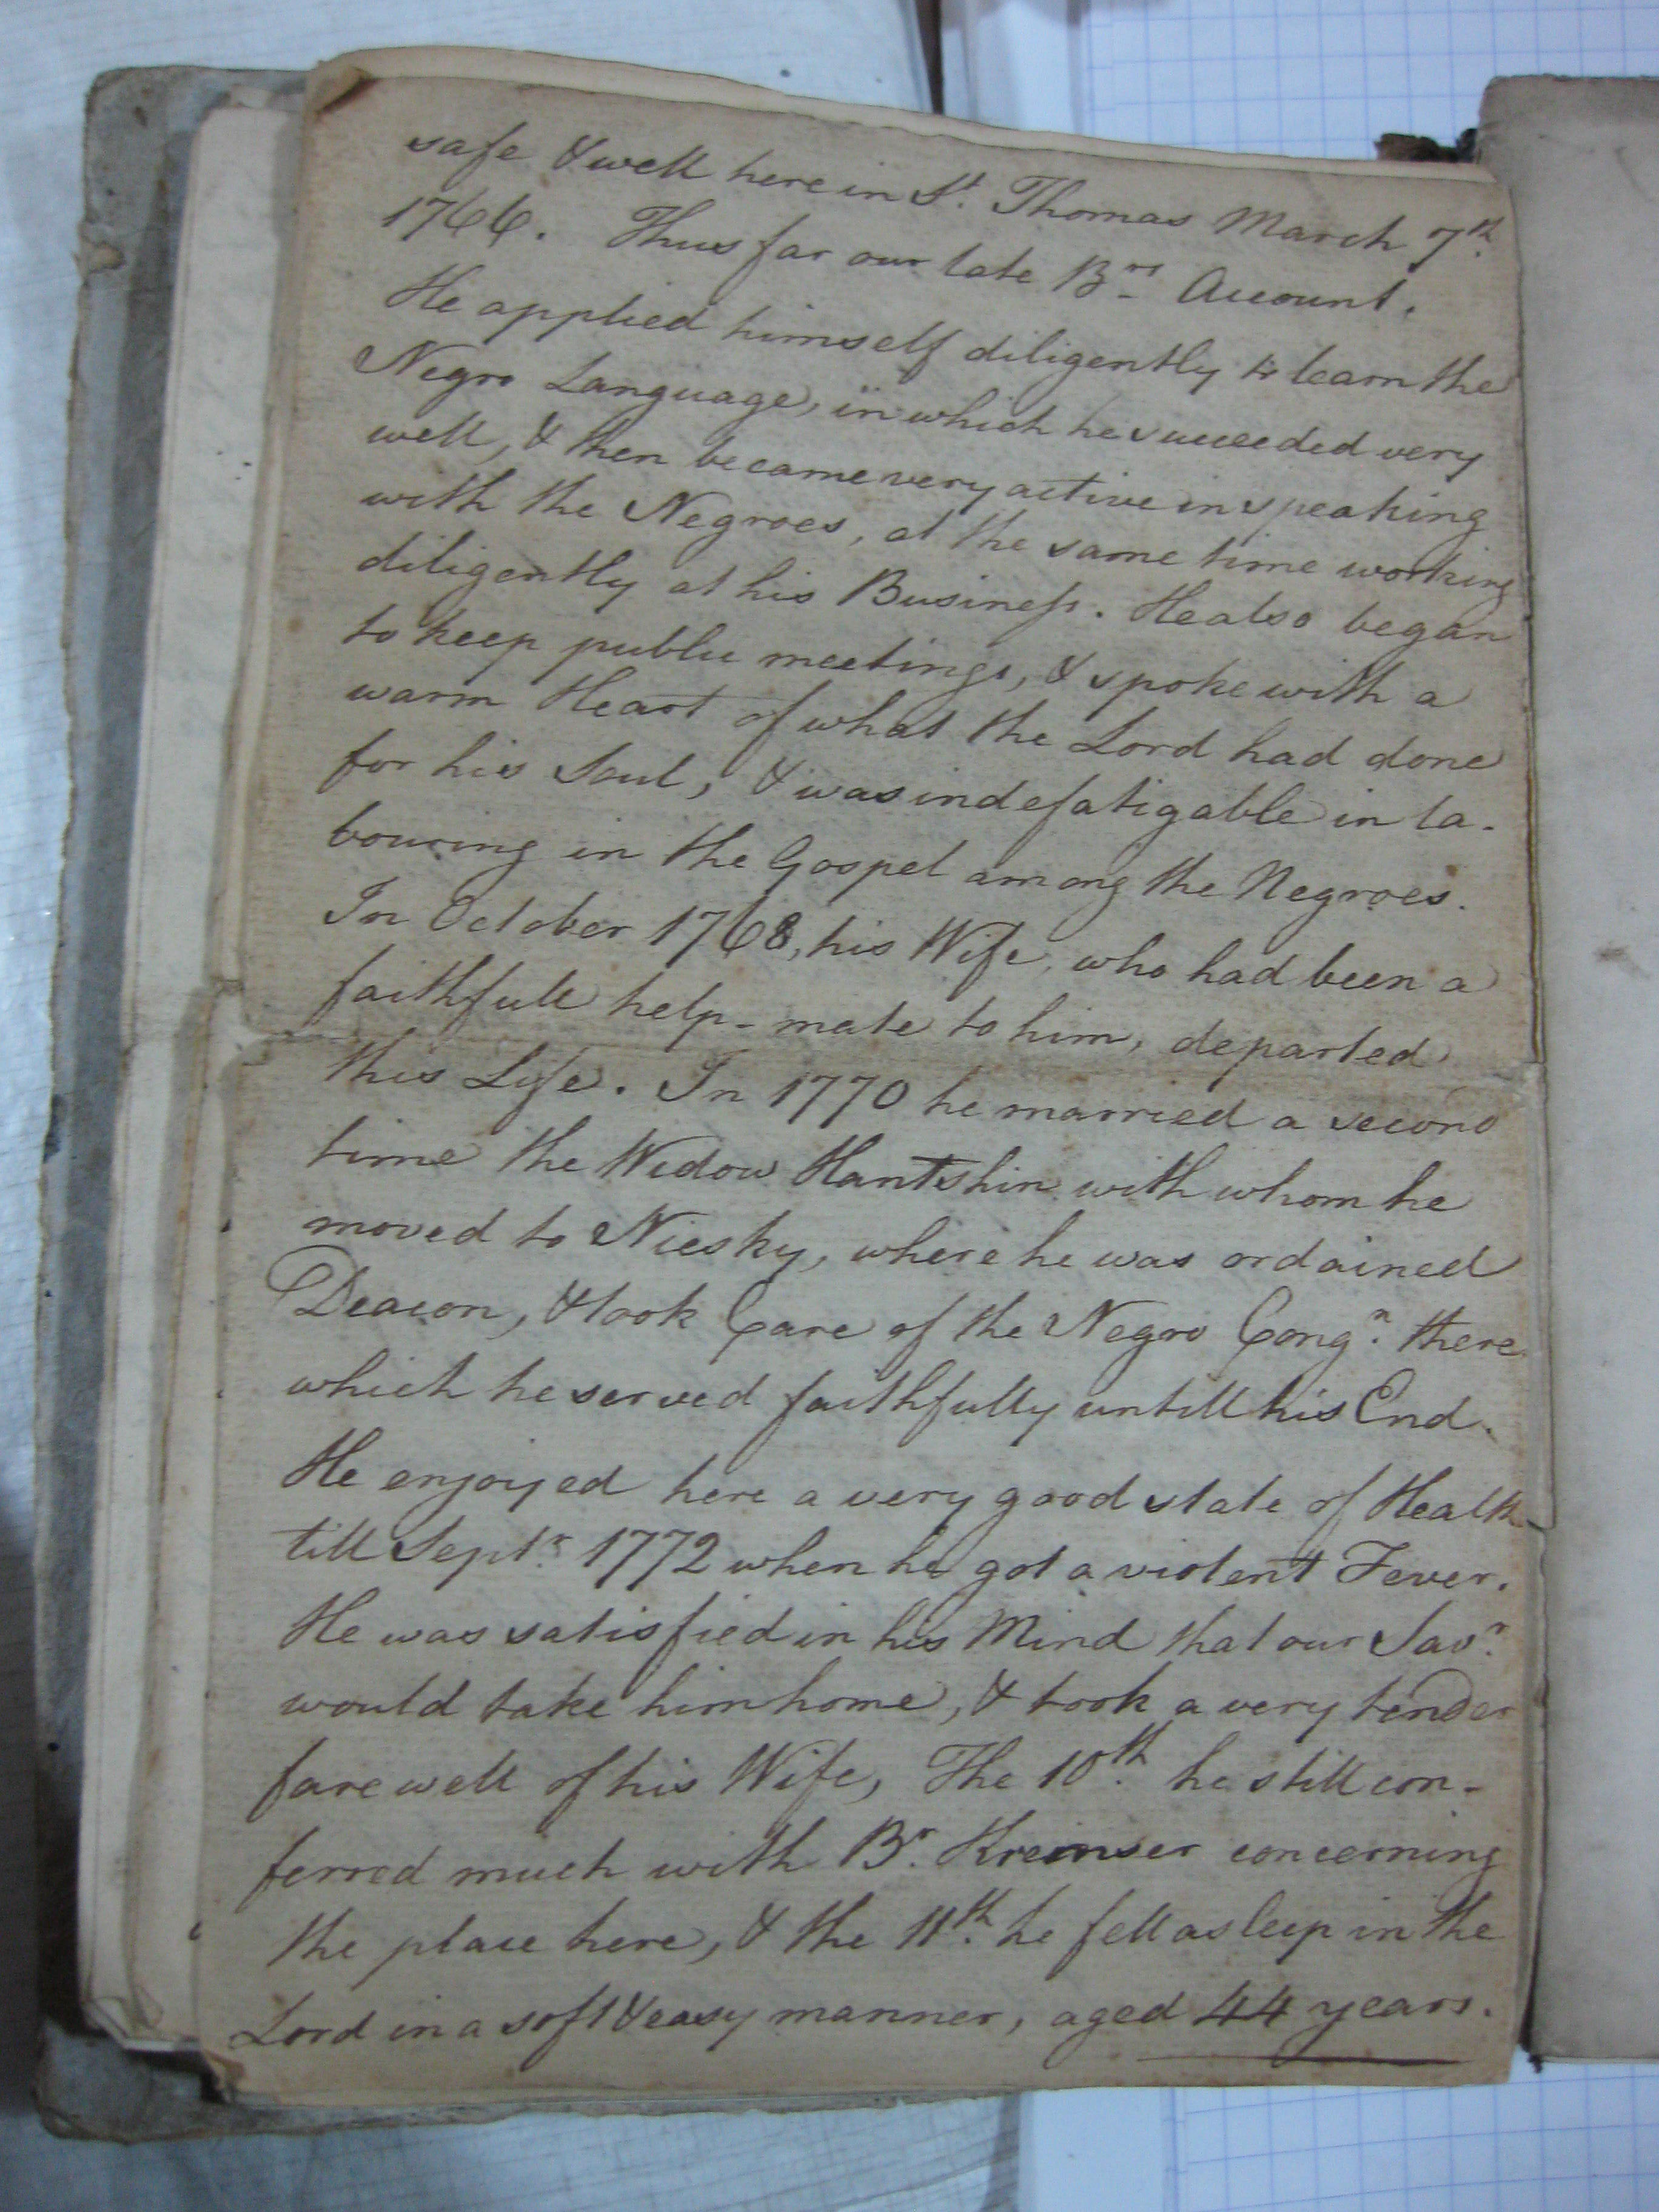 safe & well here in St. Thomas March 7th.
1766. Thus far our late Brs. Account.
He applied himself diligently to learn the
Negro Language, in which he succeeded very
well, & then became very active in speaking
with the Negroes, at the same time working
diligently at his Business. He also began
to keep public meetings, & spoke with a
warm Heart of what the Lord had done
for his Soul, & was indefatigable in la-
bouring in the Gospel among the Negroes.
In October 1768, his Wife, who had been a
faithfull help-mate to him, departed
this Life. In 1770 he married a second
time the Widow Hantshin with whom he
moved to Niesky, where he was ordained
Deacon, & took Care of the Negro Congn. there
which he served faithfully untill his End.
He enjoyed here a very good state of Health
till Septr. 1772 when he got a violent Fever.
He was satisfied in his Mind that our Savr.
would take him home, & took a very tender
farewell of his Wife, The 10th. he still con-
ferred much with Br. Kremser concerning
the place here, & the 11th. he fell asleep in the
Lord in a soft & easy manner, aged 44 years.